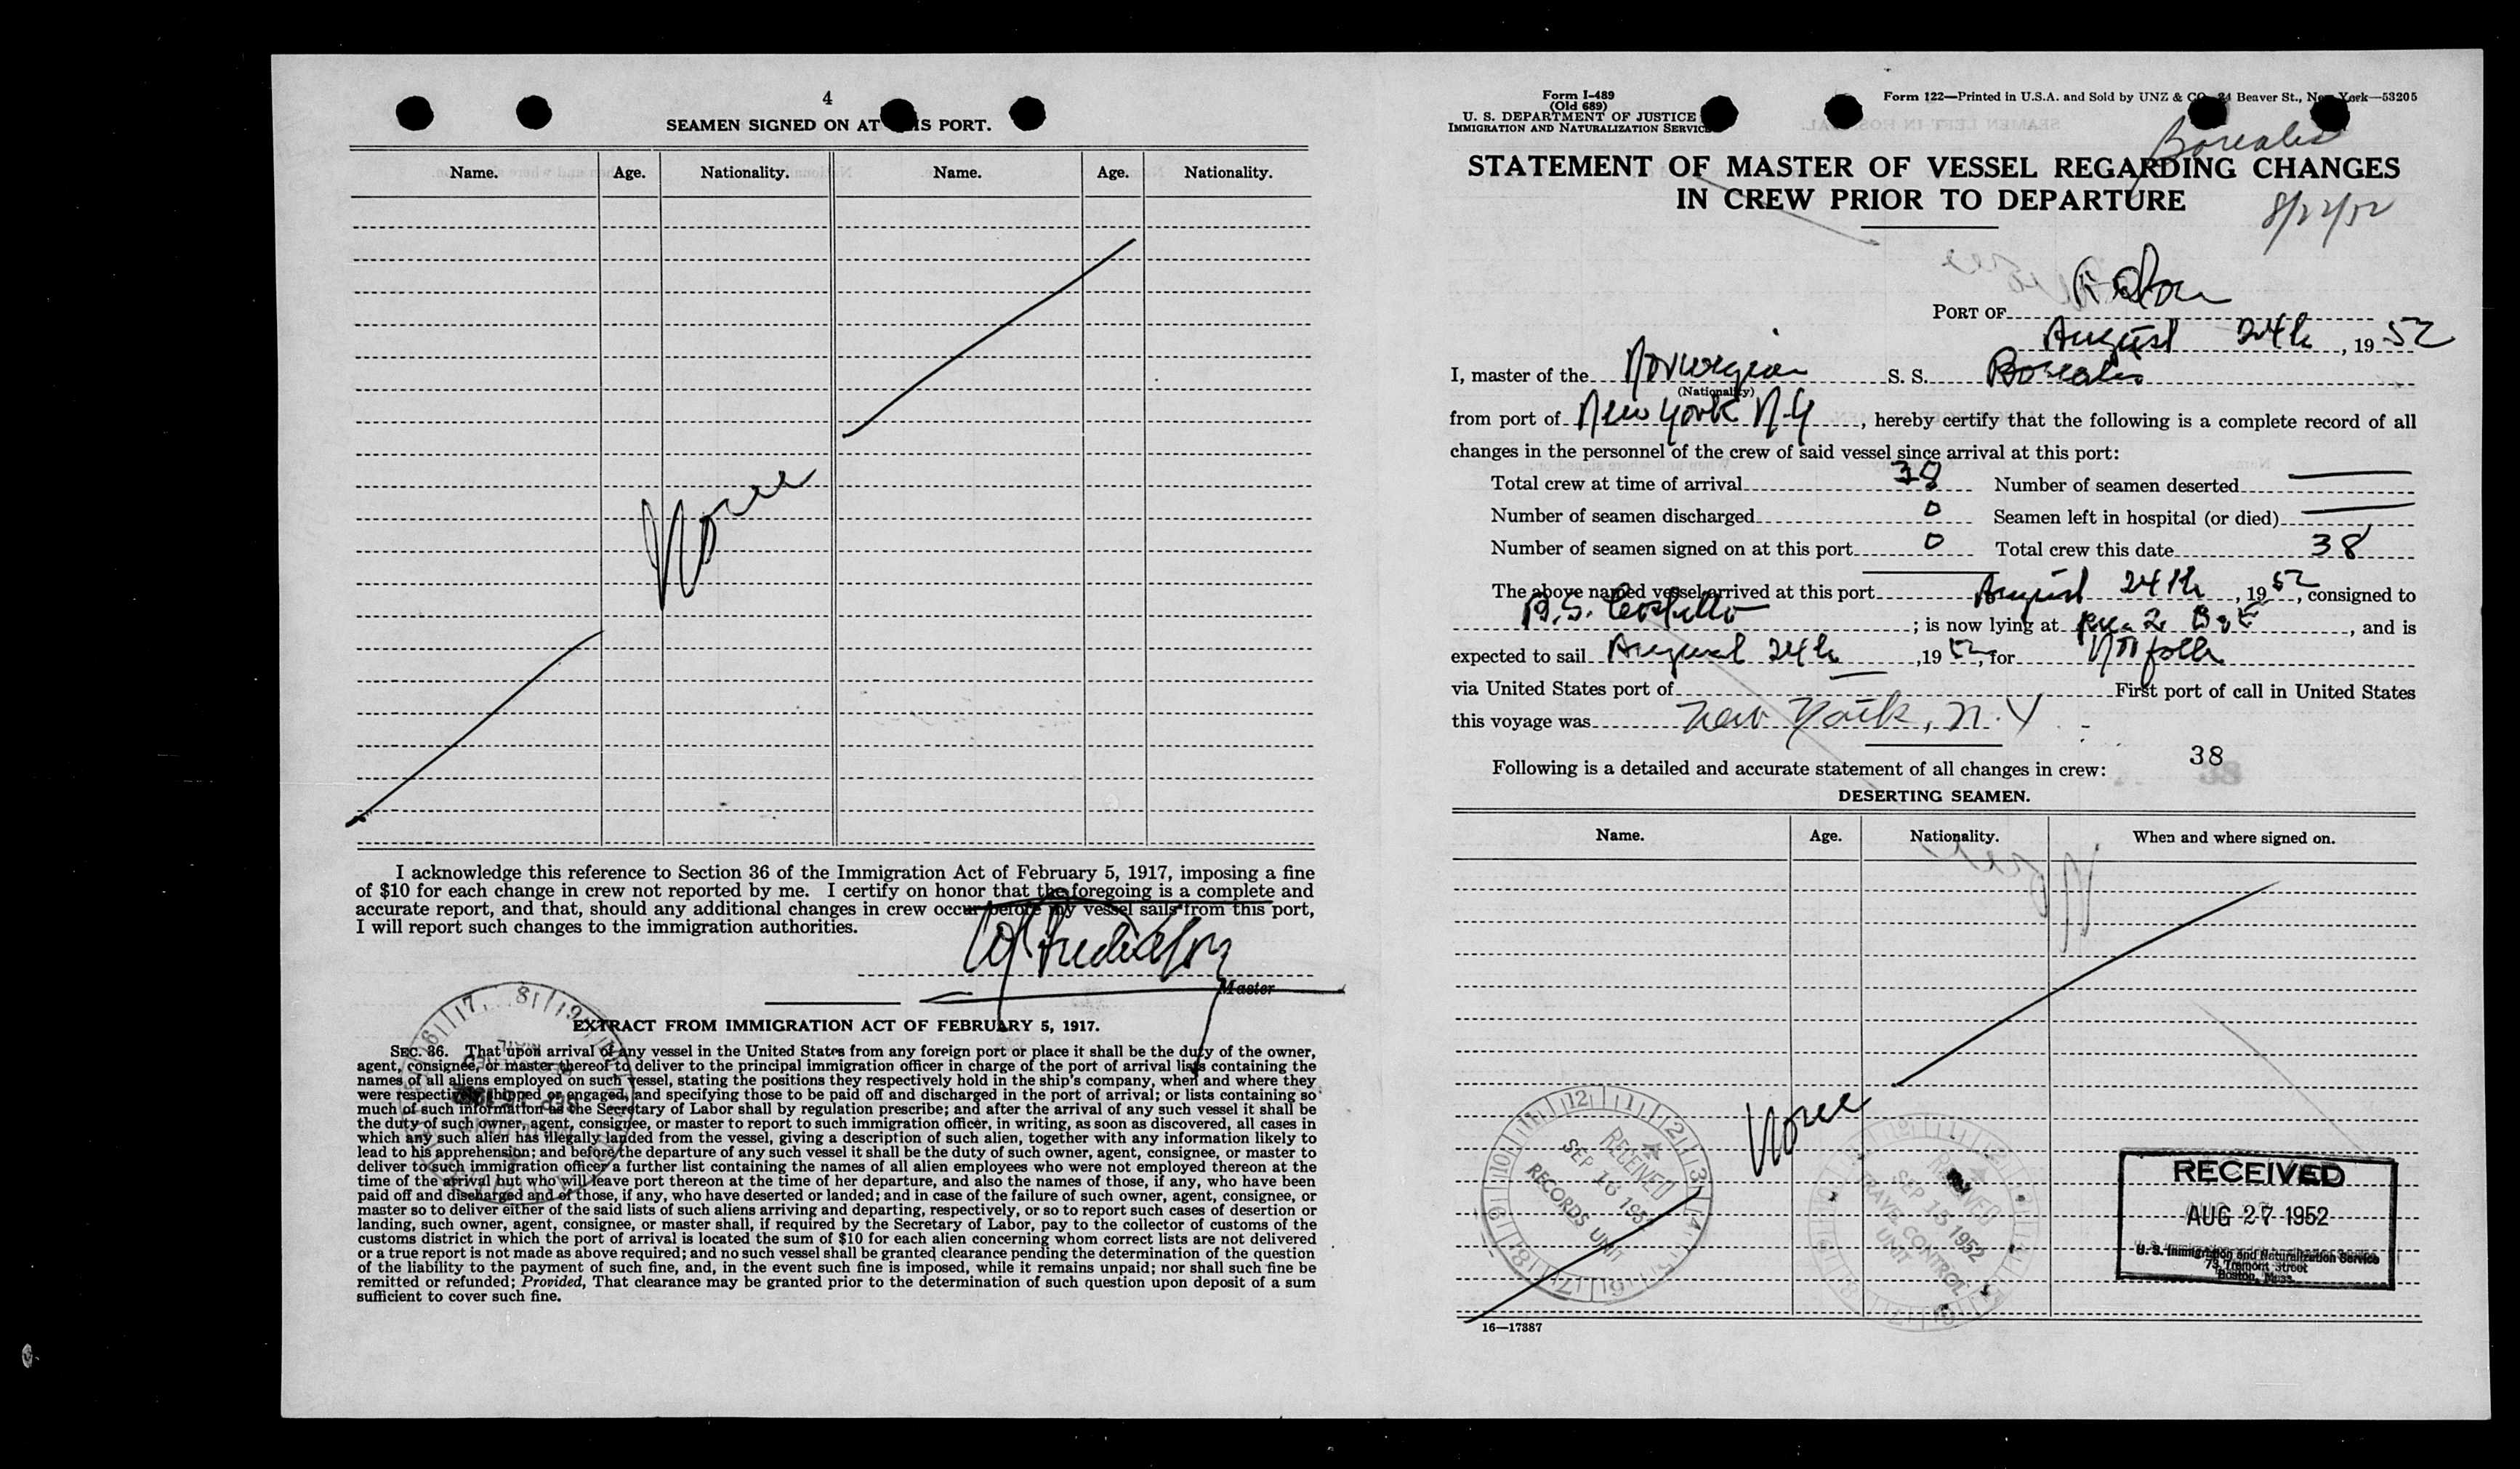 4
SEAMEN SIGNED ON AT THIS PORT.
Name. Age. Nationality. Name. Age. Nationality.
None
I acknowledge this reference to Section 36 of the Immigration Act of February 5, 1917, imposing a fine
of $10 for each change in crew not reported by me. I certify on honor that the foregoing is a complete and
accurate report, and that, should any additional changes in crew occur before my vessel sails from this port,
I will report such changes to the immigration authorities.
Master
EXTRACT FROM IMMIGRATION ACT OF FEBRUARY 5, 1917.
SEC. 36. That upon arrival of any vessel in the United States from any foreign port or place it shall be the duty of the owner,
agent, consignee, or master thereof to deliver to the principal immigration officer in charge of the port of arrival lists containing the
names of all aliens employed on such vessel, stating the positions they respectively hold in the ship's company, when and where they
were respectively shipped or engaged, and specifying those to be paid off and discharged in the port of arrival; or lists containing so
much of such information as the Secretary of Labor shall by regulation prescribe; and after the arrival of any such vessel it shall be
the duty of such owner, agent, consignee, or master to report to such immigration officer, in writing, as soon as discovered, all cases in
which any such alien has illegally landed from the vessel, giving a description of such alien, together with any information likely to
lead to his apprehension; and before the departure of any such vessel it shall be the duty of such owner, agent, consignee, or master to
deliver to such immigration officer a further list containing the names of all alien employees who were not employed thereon at the
time of the arrival but who will leave port thereon at the time of her departure, and also the names of those, if any, who have been
paid off and discharged and of those, if any, who have deserted or landed; and in case of the failure of such owner, agent, consignee, or
master so to deliver either of the said lists of such aliens arriving and departing, respectively, or so to report such cases of desertion or
landing, such owner, agent, consignee, or master shall, if required by the Secretary of Labor, pay to the collector of customs of the
customs district in which the port of arrival is located the sum of $10 for each alien concerning whom correct lists are not delivered
or a true report is not made as above required; and no such vessel shall be granted clearance pending the determination of the question
of the liability to the payment of such fine, and, in the event such fine is imposed, while it remains unpaid; nor shall such fine be
remitted or refunded; Provided, That clearance may be granted prior to the determination of such question upon deposit of a sum
sufficient to cover such fine.
Form I-489
(Old 689)
U. S. DEPARTMENT OF JUSTICE
IMMIGRATION AND NATURALIZATION SERVICE
Form 122—Printed in U.S.A. and Sold by UNZ & CO., 24 Beaver St., New York—53205
Borealis
STATEMENT OF MASTER OF VESSEL REGARDING CHANGES
IN CREW PRIOR TO DEPARTURE
8/22/52
PORT OF Boston
August 24th, 19 52
I, master of the Norwegian S. S. Borealis
(Nationality)
from port of New York N.Y, hereby certify that the following is a complete record of all
changes in the personnel of the crew of said vessel since arrival at this port:
Total crew at time of arrival 38 Number of seamen deserted
Number of seamen discharged 0 Seamen left in hospital (or died)
Number of seamen signed on at this port 0 Total crew this date 38
The above named vessel arrived at this port August 24th, 19 52, consigned to
; is now lying at , and is
expected to sail August 24th, 19 52, for Norfolk
via United States port of First port of call in United States
this voyage was New York, N.Y
38
Following is a detailed and accurate statement of all changes in crew:
DESERTING SEAMEN.
Name. Age. Nationality. When and where signed on.
None
RECEIVED
SEP 16 195
RECORDS UNIT
RECEIVED
SEP 15 1952
TRAVEL CONTROL
UNIT
RECEIVED
AUG 27 1952
U. S. Immigration and Naturalization Service
73 Tremont Street
Boston, Mass.
16—17387